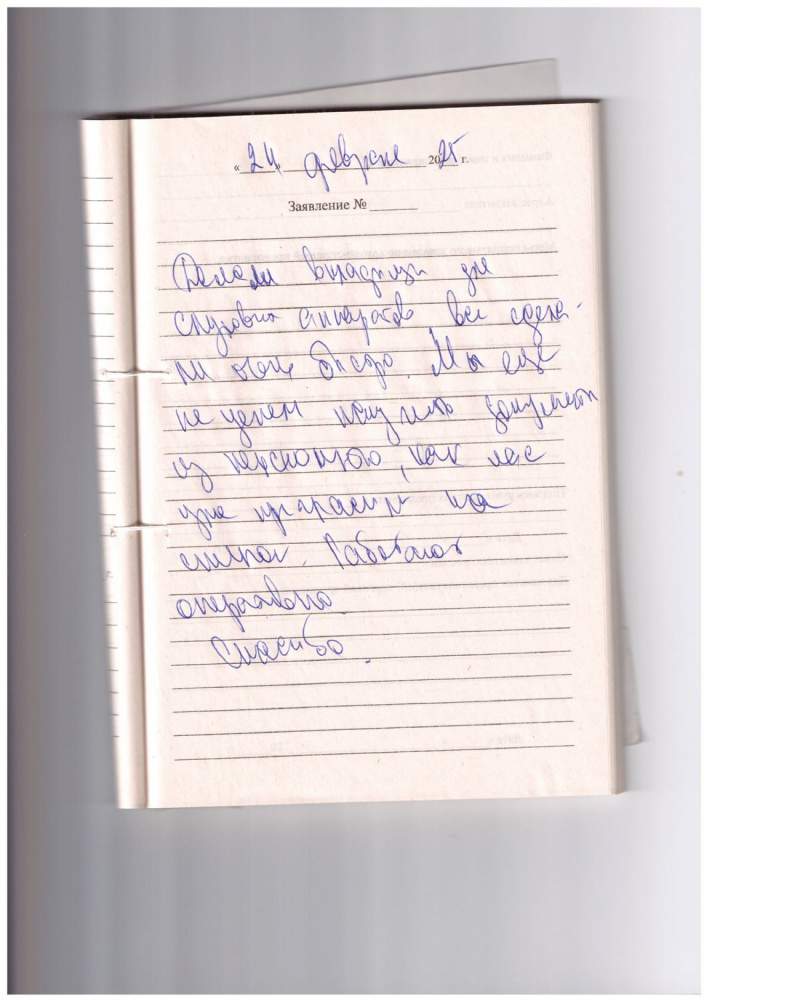 « 24 » февраля 2025 г.
Заявление №
Делали вкладыши для
слуховых аппаратов все сдела-
ли очень быстро. Мы еще
не успели получить документы
из, как нас
уже пригласили на
. Работают
оперативно
Спасибо.